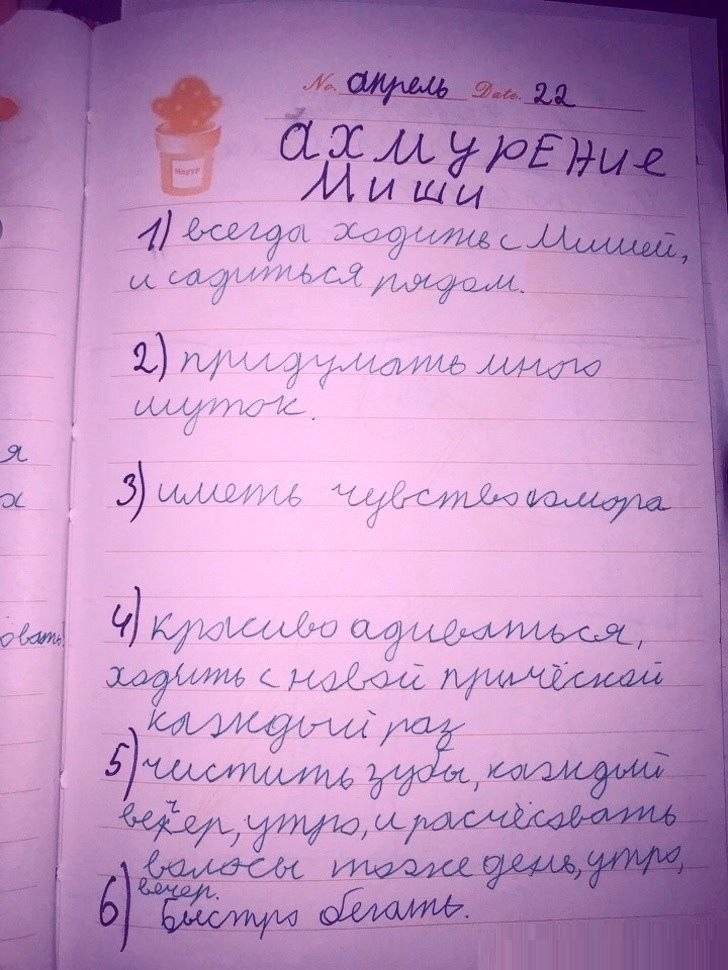 No. апрель Date. 22
ахмурение
Миши
1) всегда ходить с Мишей,
и садиться рядом.
2) придумать много
шуток.
я
3) иметь чувство юмора
х
4) красиво адиваться,
овать
ходить с новой причёской
каждый раз
5) чистить зубы, каждый
вечер, утро, и расчёсовать
волосы тоже день, утро,
вечер.
6) Быстро бегать.